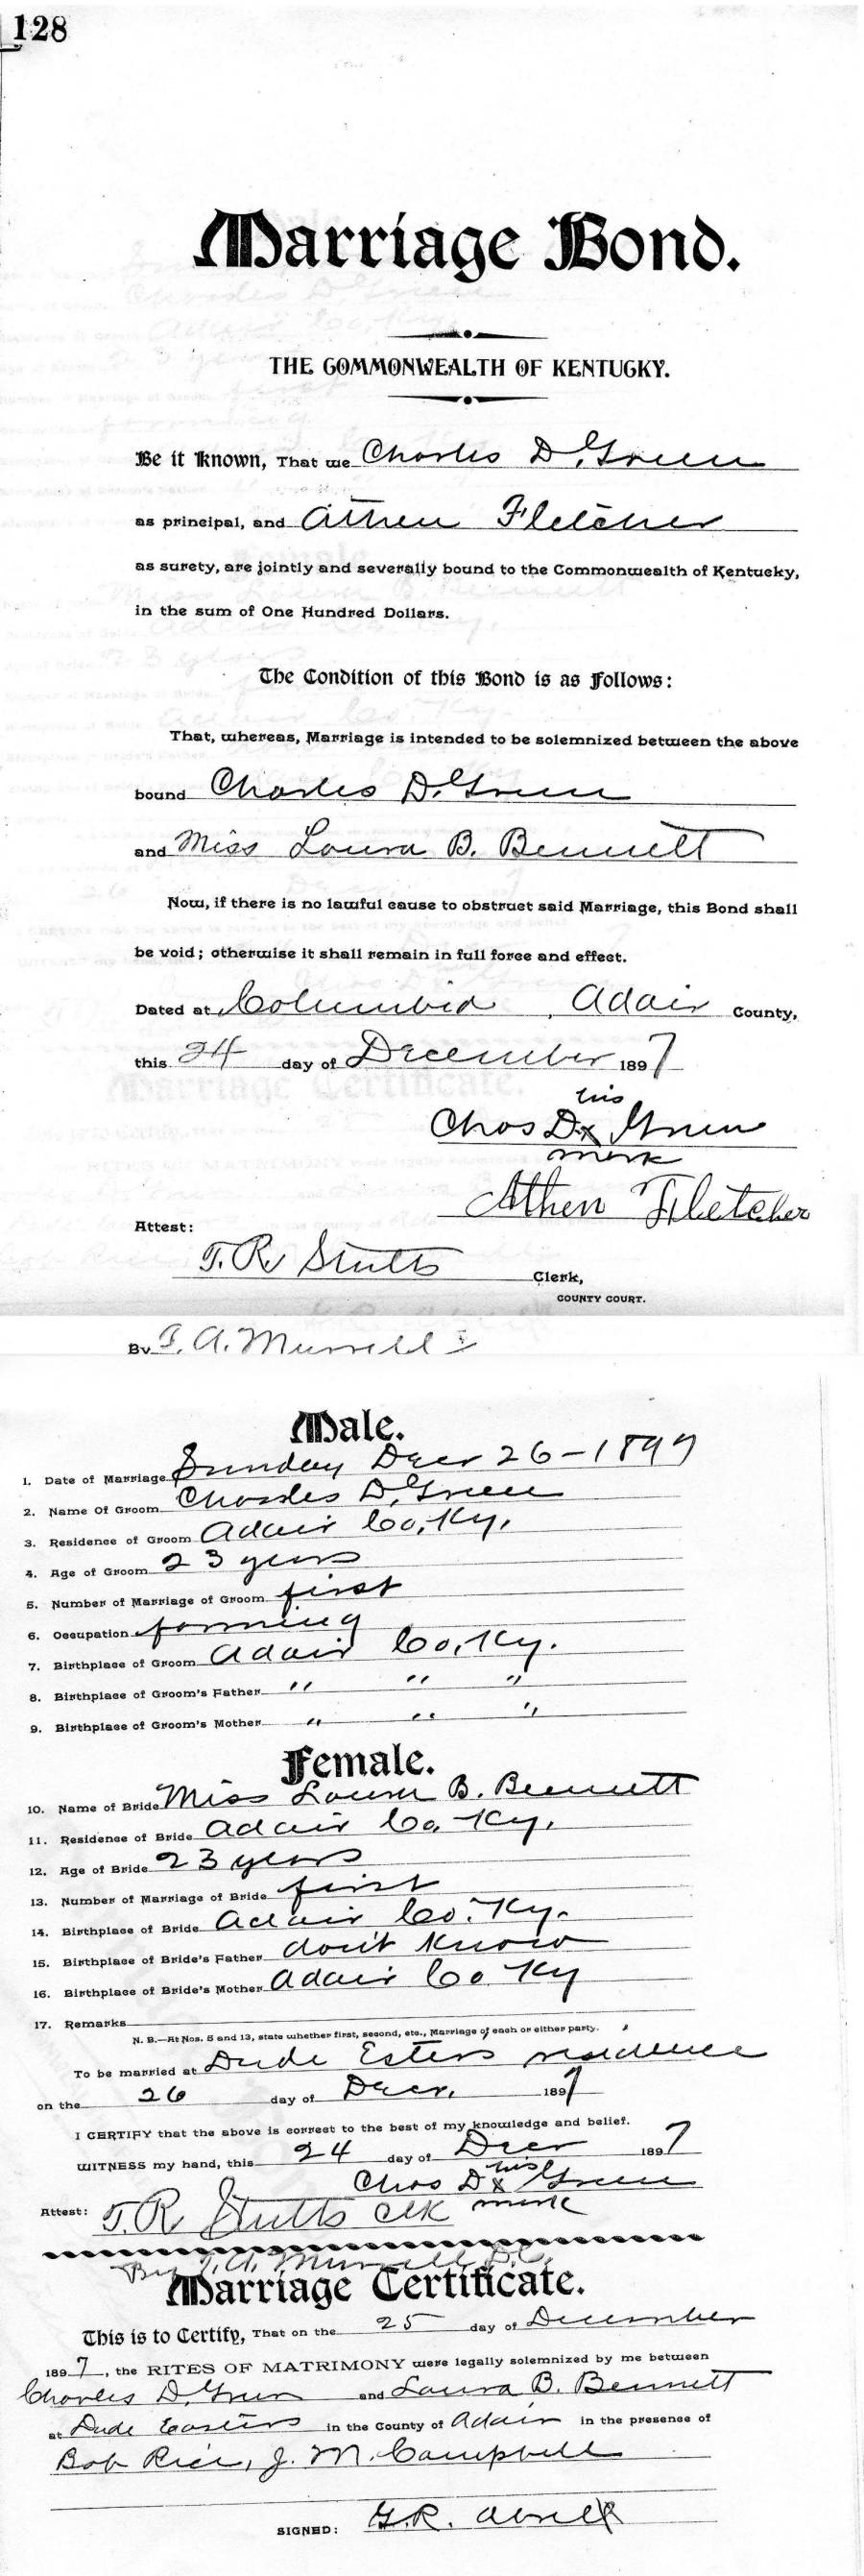 128
Marriage Bond.
THE COMMONWEALTH OF KENTUCKY.
Be it Known, That we Charles D. Green
as principal, and Athen Fletcher
as surety, are jointly and severally bound to the Commonwealth of Kentucky,
in the sum of One Hundred Dollars.
The Condition of this Bond is as Follows:
That, whereas, Marriage is intended to be solemnized between the above
bound Charles D. Green
and Miss Laura B. Bennett
Now, if there is no lawful cause to obstruct said Marriage, this Bond shall
be void; otherwise it shall remain in full force and effect.
Dated at Columbia, Adair County,
this 24 day of December 1897
his
Chas D x Green
mark
Athen Fletcher
Attest:
T. R. Stults Clerk,
COUNTY COURT.
By T. A. Murrell
Male.
1. Date of Marriage Sunday Decr 26-1897
2. Name Of Groom Charles D. Green
3. Residence of Groom Adair Co, Ky.
4. Age of Groom 23 years
5. Number of Marriage of Groom first
6. Occupation farming
7. Birthplace of Groom Adair Co, Ky.
8. Birthplace of Groom's Father " " "
9. Birthplace of Groom's Mother " " "
Female.
10. Name of Bride Miss Laura B. Bennett
11. Residence of Bride Adair Co, Ky.
12. Age of Bride 23 years
13. Number of Marriage of Bride first
14. Birthplace of Bride Adair Co. Ky.
15. Birthplace of Bride's Father don't know
16. Birthplace of Bride's Mother Adair Co Ky
17. Remarks
N. B.—At Nos. 5 and 13, state whether first, second, etc., Marriage of each or either party.
To be married at Dude Esters residence
on the 26 day of Decr. 1897
I CERTIFY that the above is correct to the best of my knowledge and belief.
WITNESS my hand, this 24 day of Decr 1897
his
Chas D x Green
Attest: T. R. Stults Clk mark
By T. A. Murrell D.C.
Marriage Certificate.
This is to Certify, That on the 25 day of December
1897, the RITES OF MATRIMONY were legally solemnized by me between
Charles D. Green and Laura B. Bennett
at Dude Easters in the County of Adair in the presence of
Bob Rice, J. M. Campbell
SIGNED: G. R. Abrell